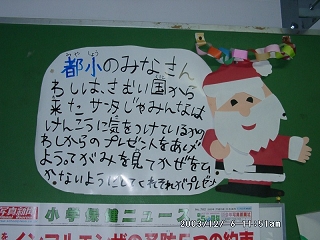 みや しょう
都小のみなさん
わしは、さむい国から
来たサンタじゃみんなは
けんこうに気をつけているか
わしからのプレゼントをあげ
ようてがみを見てかぜをひ
かないようにしてくれそれがプレゼント
2003/12/ 6 11:51am
小学保健ニュース
インフルエンザの予防5つの約束